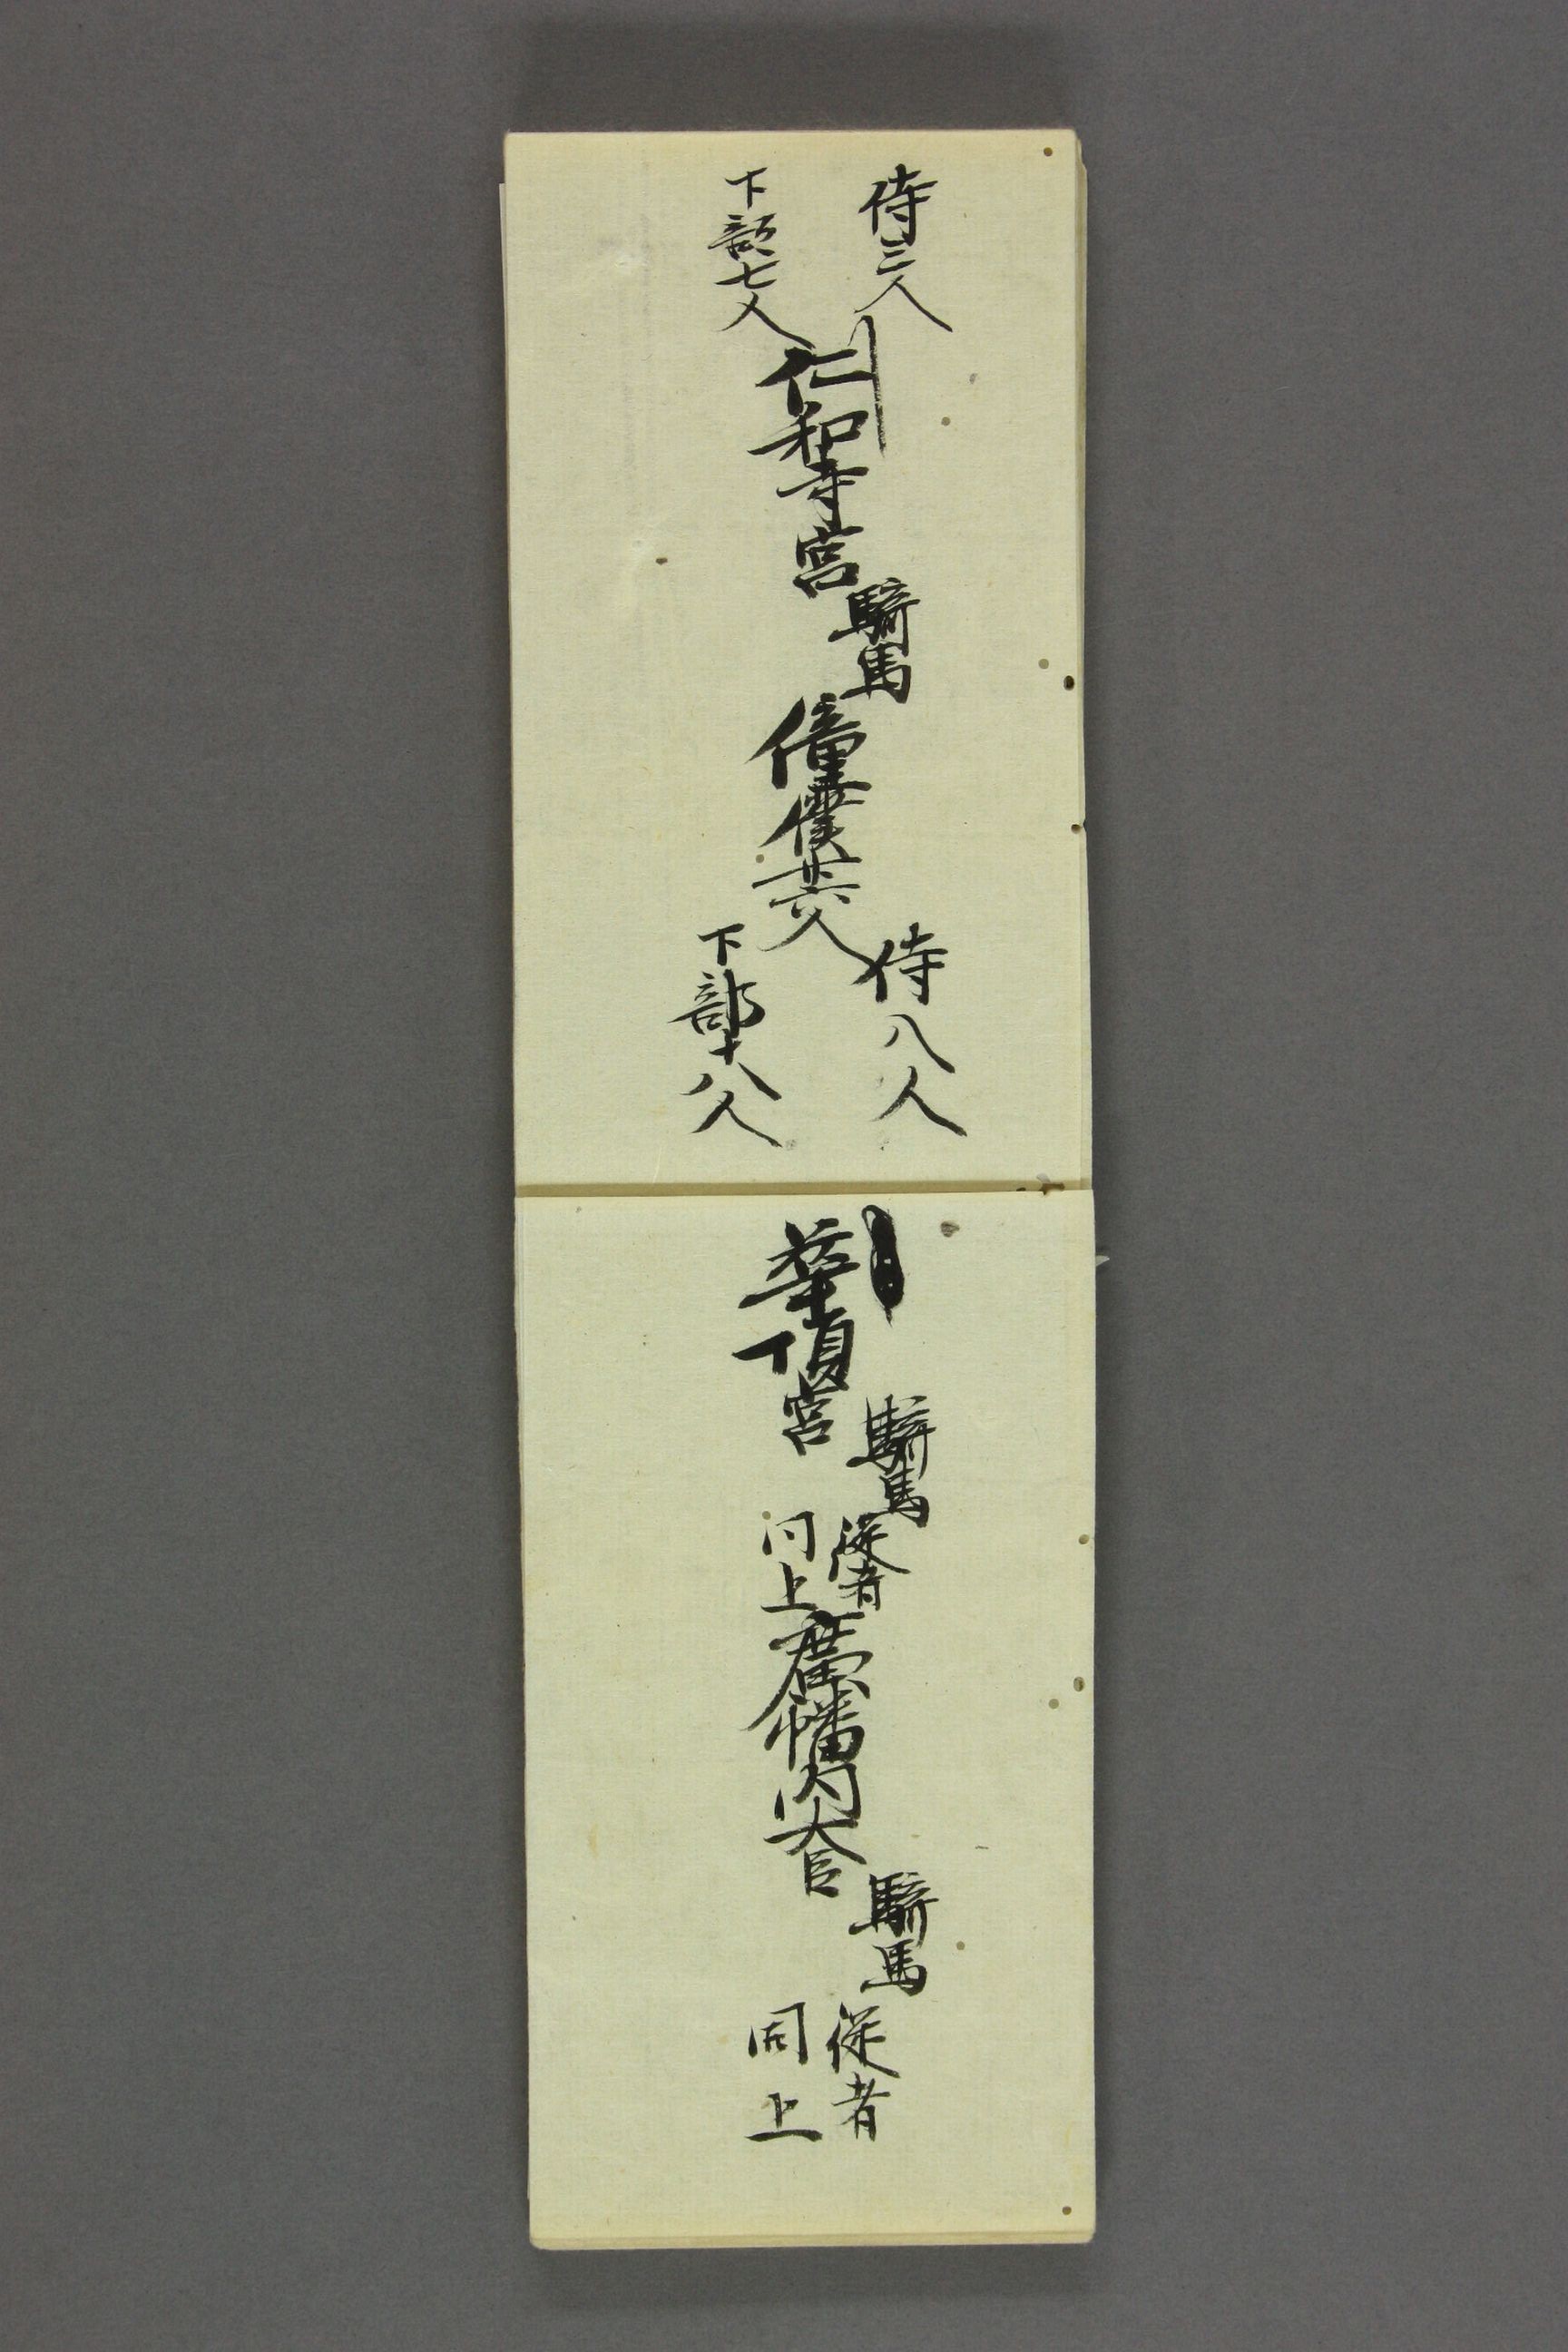 侍三人
下部七人
仁和寺宮
騎馬
僮僕廿六人
侍八人
下部十八人
華頂宮
騎馬
従者
同上
廣幡内大臣
騎馬
従者
同上